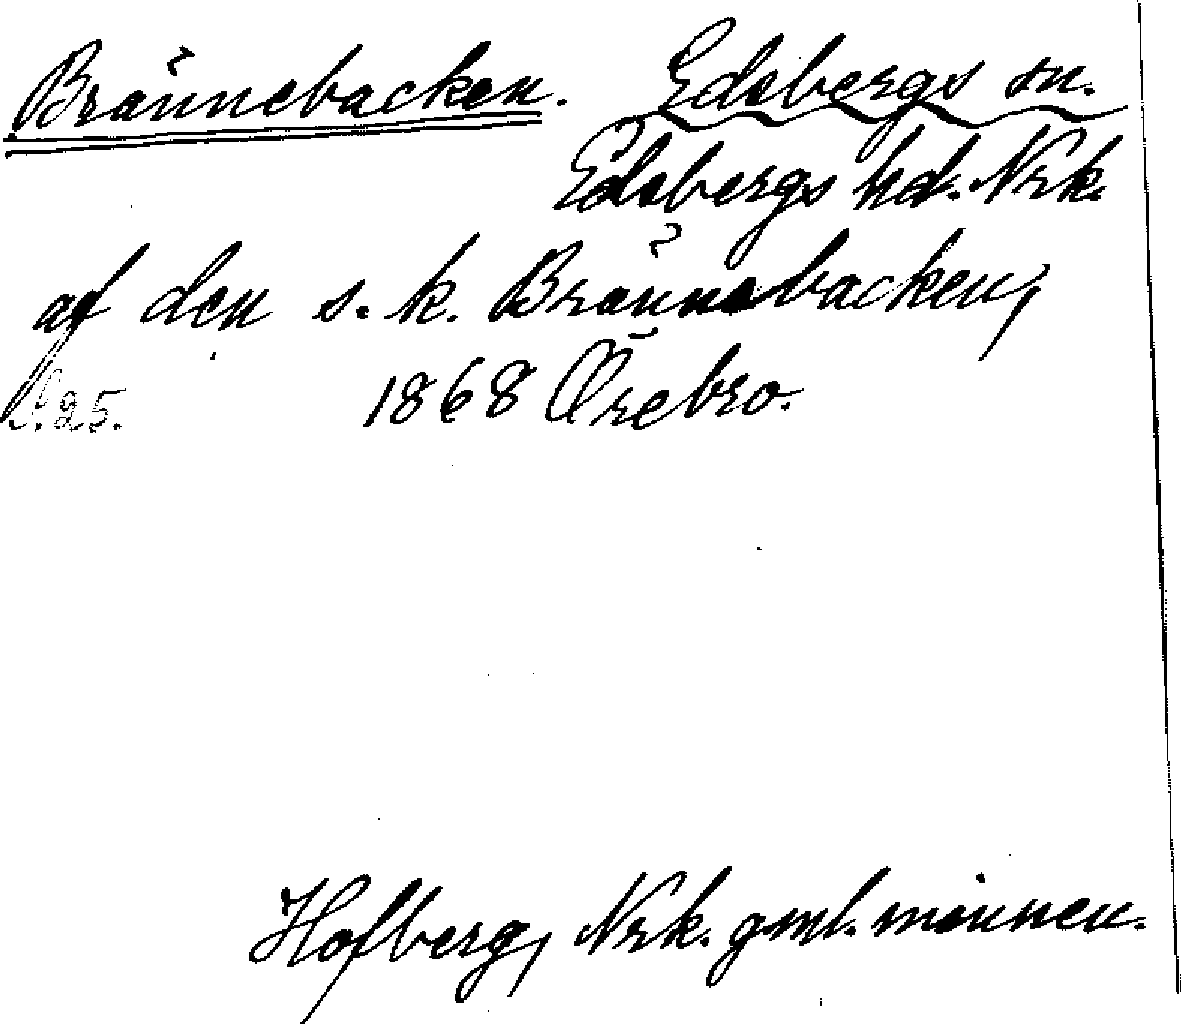 Brännebacken. Edsbergs sn.
Edsbergs hd. Nrk.
af den s. k. Brännebacken,
s. 25. 1868 Örebro.
Hofberg, Nrk. gml. minnen.